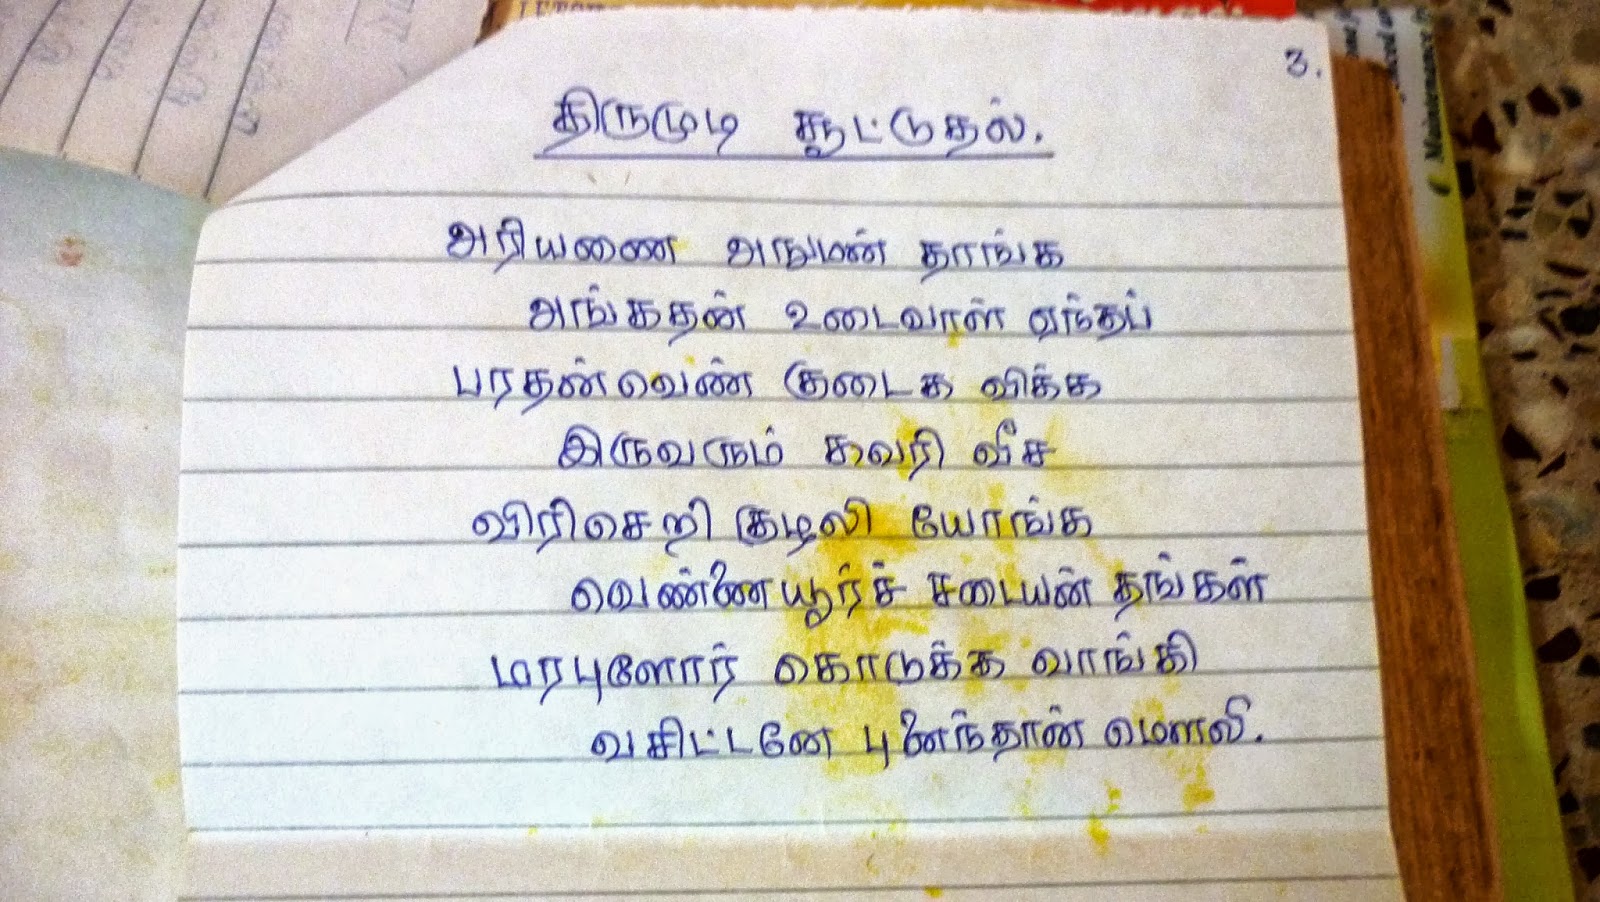 3.
திருமுடி சூட்டுதல்.
அரியணை அநுமன் தாங்க
அங்கதன் உடைவாள் ஏந்தப்
பரதன்வெண் குடைக விக்க
இருவரும் கவரி வீச
விரிசெறி குழலி யோங்க
வெண்ணையூர்ச் சடையன் தங்கள்
மரபுளோர் கொடுக்க வாங்கி
வசிட்டனே புனைந்தான் மௌலி.
Maintenance